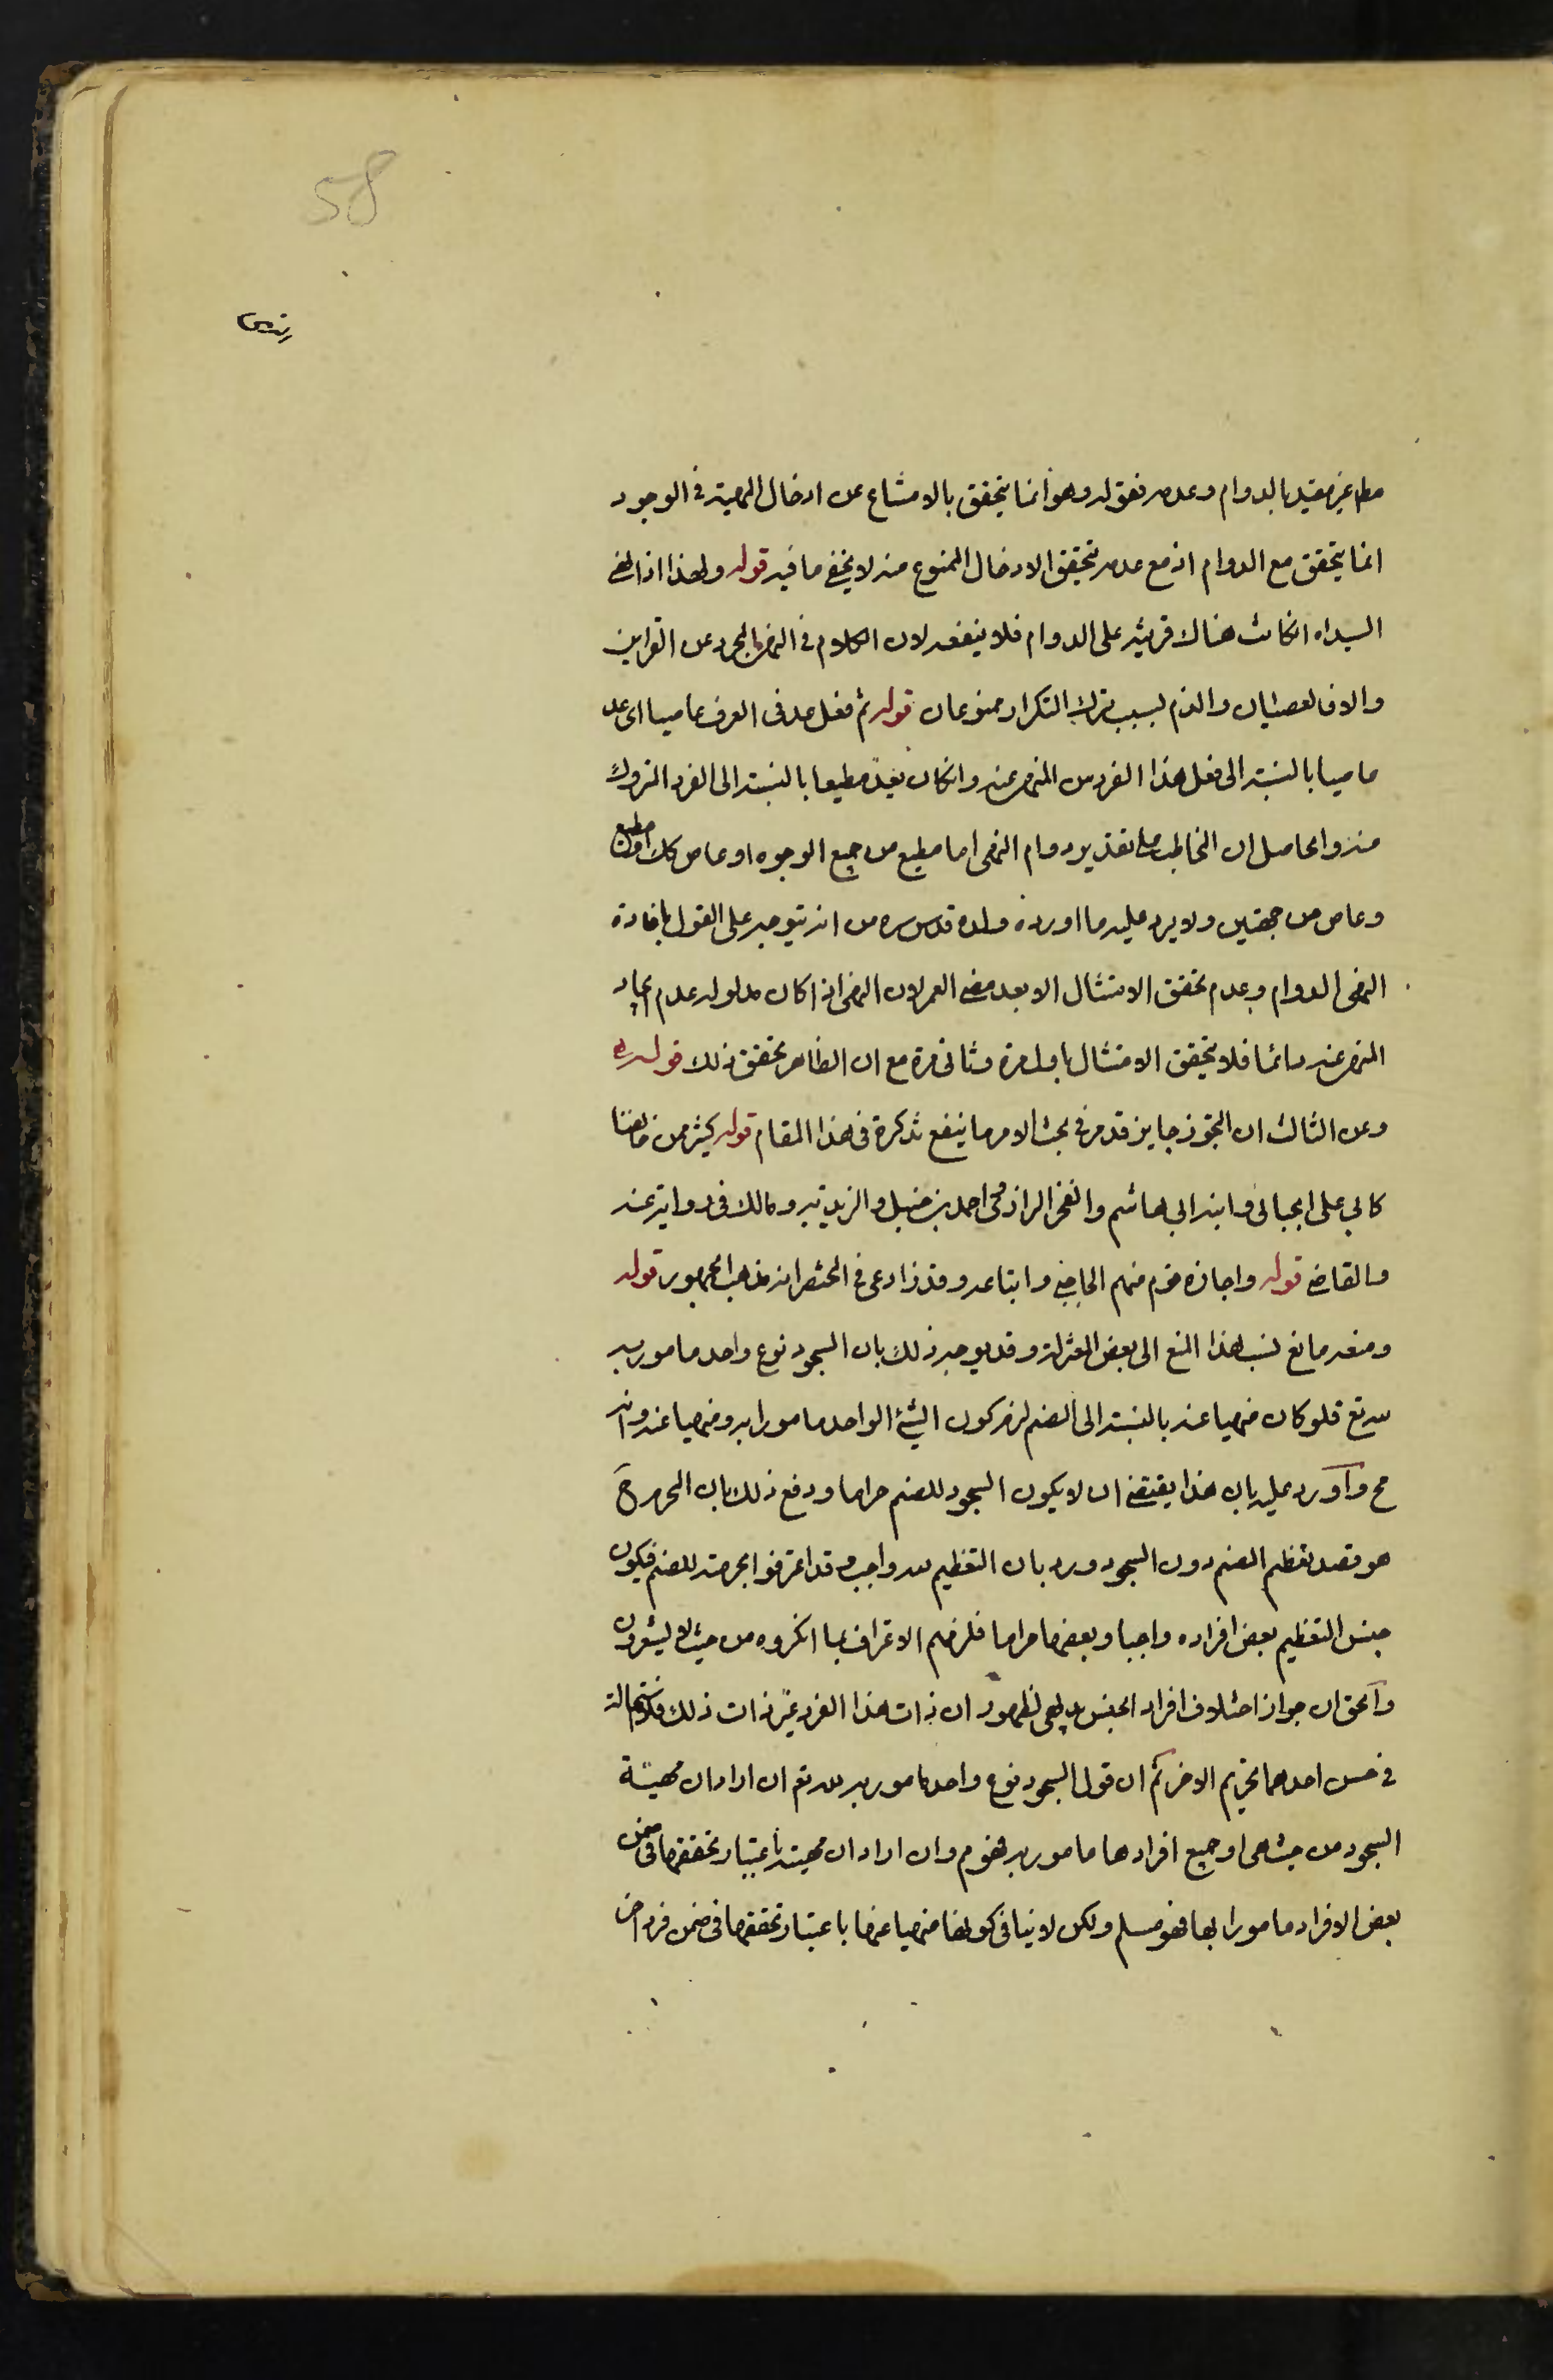 58
مطلم غير مقيد بالدوام وعدمه فقوله وهو انما يتحقق بالامتناع عن ادخال المهية في الوجود
انما يتحقق مع الدوام اذ مع عدمه يتحقق الادخال الممنوع منه لا يخفى ما فيه قوله ولهذا اذا نهى
السيد اه انكانت هناك قرينة على الدوام فلا ينفعه لان الكلام في النهي المجرد عن القراين
والا فالعصيان والذم بسبب ترك التكرار ممنوعان قوله ثم فعل عد في العرف عاصيا اى عد
عاصيا بالنسبة الى فعل هذا الفرد من المنهي عنه وانكان يعد مطيعا بالنسبة الى الفرد المتروك
منه والحاصل ان المخاطب على تقدير دوام النهى اما مطيع من جميع الوجوه او عاص كك او مطيع
وعاص من جهتين ولا يرد عليه ما اورده ولده قدس سره من انه يتوجه على القول بافادة
النهى الدوام وعدم تحقق الامتثال الا بعد مضى العمر لان النهى اذا كان مدلوله عدم ايجاد
المنهي عنه دائما فلا يتحقق الامتثال باول مرة وثانى مرة مع ان الظاهر تحقق ذلك قوله
وعن الثالث ان التجوز جايز قد مر في بحث الامر ما ينفع تذكره في هذا المقام قوله كثير من مخالفينا
كابي على الجبائى وابنه ابي هاشم والفخر الرازى واحمد بن حنبل والزيدية ومالك في رواية عنه
والقاضى قوله واجازه قوم منهم الحاجبى واتباعه وقد ادعى في المختصر انه مذهب الجمهور قوله
ومنعه مانع نسب هذا المنع الى بعض المعتزلة وقد يوجه ذلك بان السجود نوع واحد مامور به
لله تع فلو كان منهيا عنه بالنسبة الى الصنم لزم كون الشئ الواحد مامورا به ومنهيا عنه وانه
مح واورد عليه بان هذا يقتضى ان لا يكون السجود للصنم حراما ودفع ذلك بان المحرم ح
هو قصد تعظيم الصنم دون السجود ورد بان التعظيم لله واجب وقد اعترفوا بحرمته للصنم فيكون
جنس التعظيم بعض افراده واجبا وبعضها حراما فلزمهم الاعتراف بما انكروه من حيث لا يشعرون
والحق ان جواز اختلاف افراد الجنس بديهى لظهور ان ذات هذا الفرد غير ذات ذلك فلا استحالة
في حسن احدهما تحريم الاخر ثم ان قول السجود نوع واحد مامور به لله تع ان اراد ان مهية
السجود من حيث هى او جميع افرادها مامور به فهو م وان اراد ان مهيته باعتبار تحققها في ضمن
بعض الافراد مامورا بها فهو مسلم ولكن لا ينافى كونها منهيا عنها باعتبار تحققها في ضمن فرد اخر